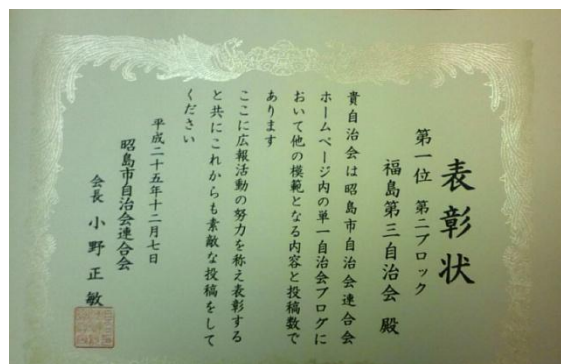 表彰状
第一位 第二ブロック
福島第三自治会 殿
貴自治会は昭島市自治会連合会
ホームページ内の単一自治会ブログに
おいて他の模範となる内容と投稿数で
あります
ここに広報活動の努力を称え表彰する
と共にこれからも素敵な投稿をして
ください
平成二十五年十二月七日
昭島市自治会連合会
会長 小野正敏